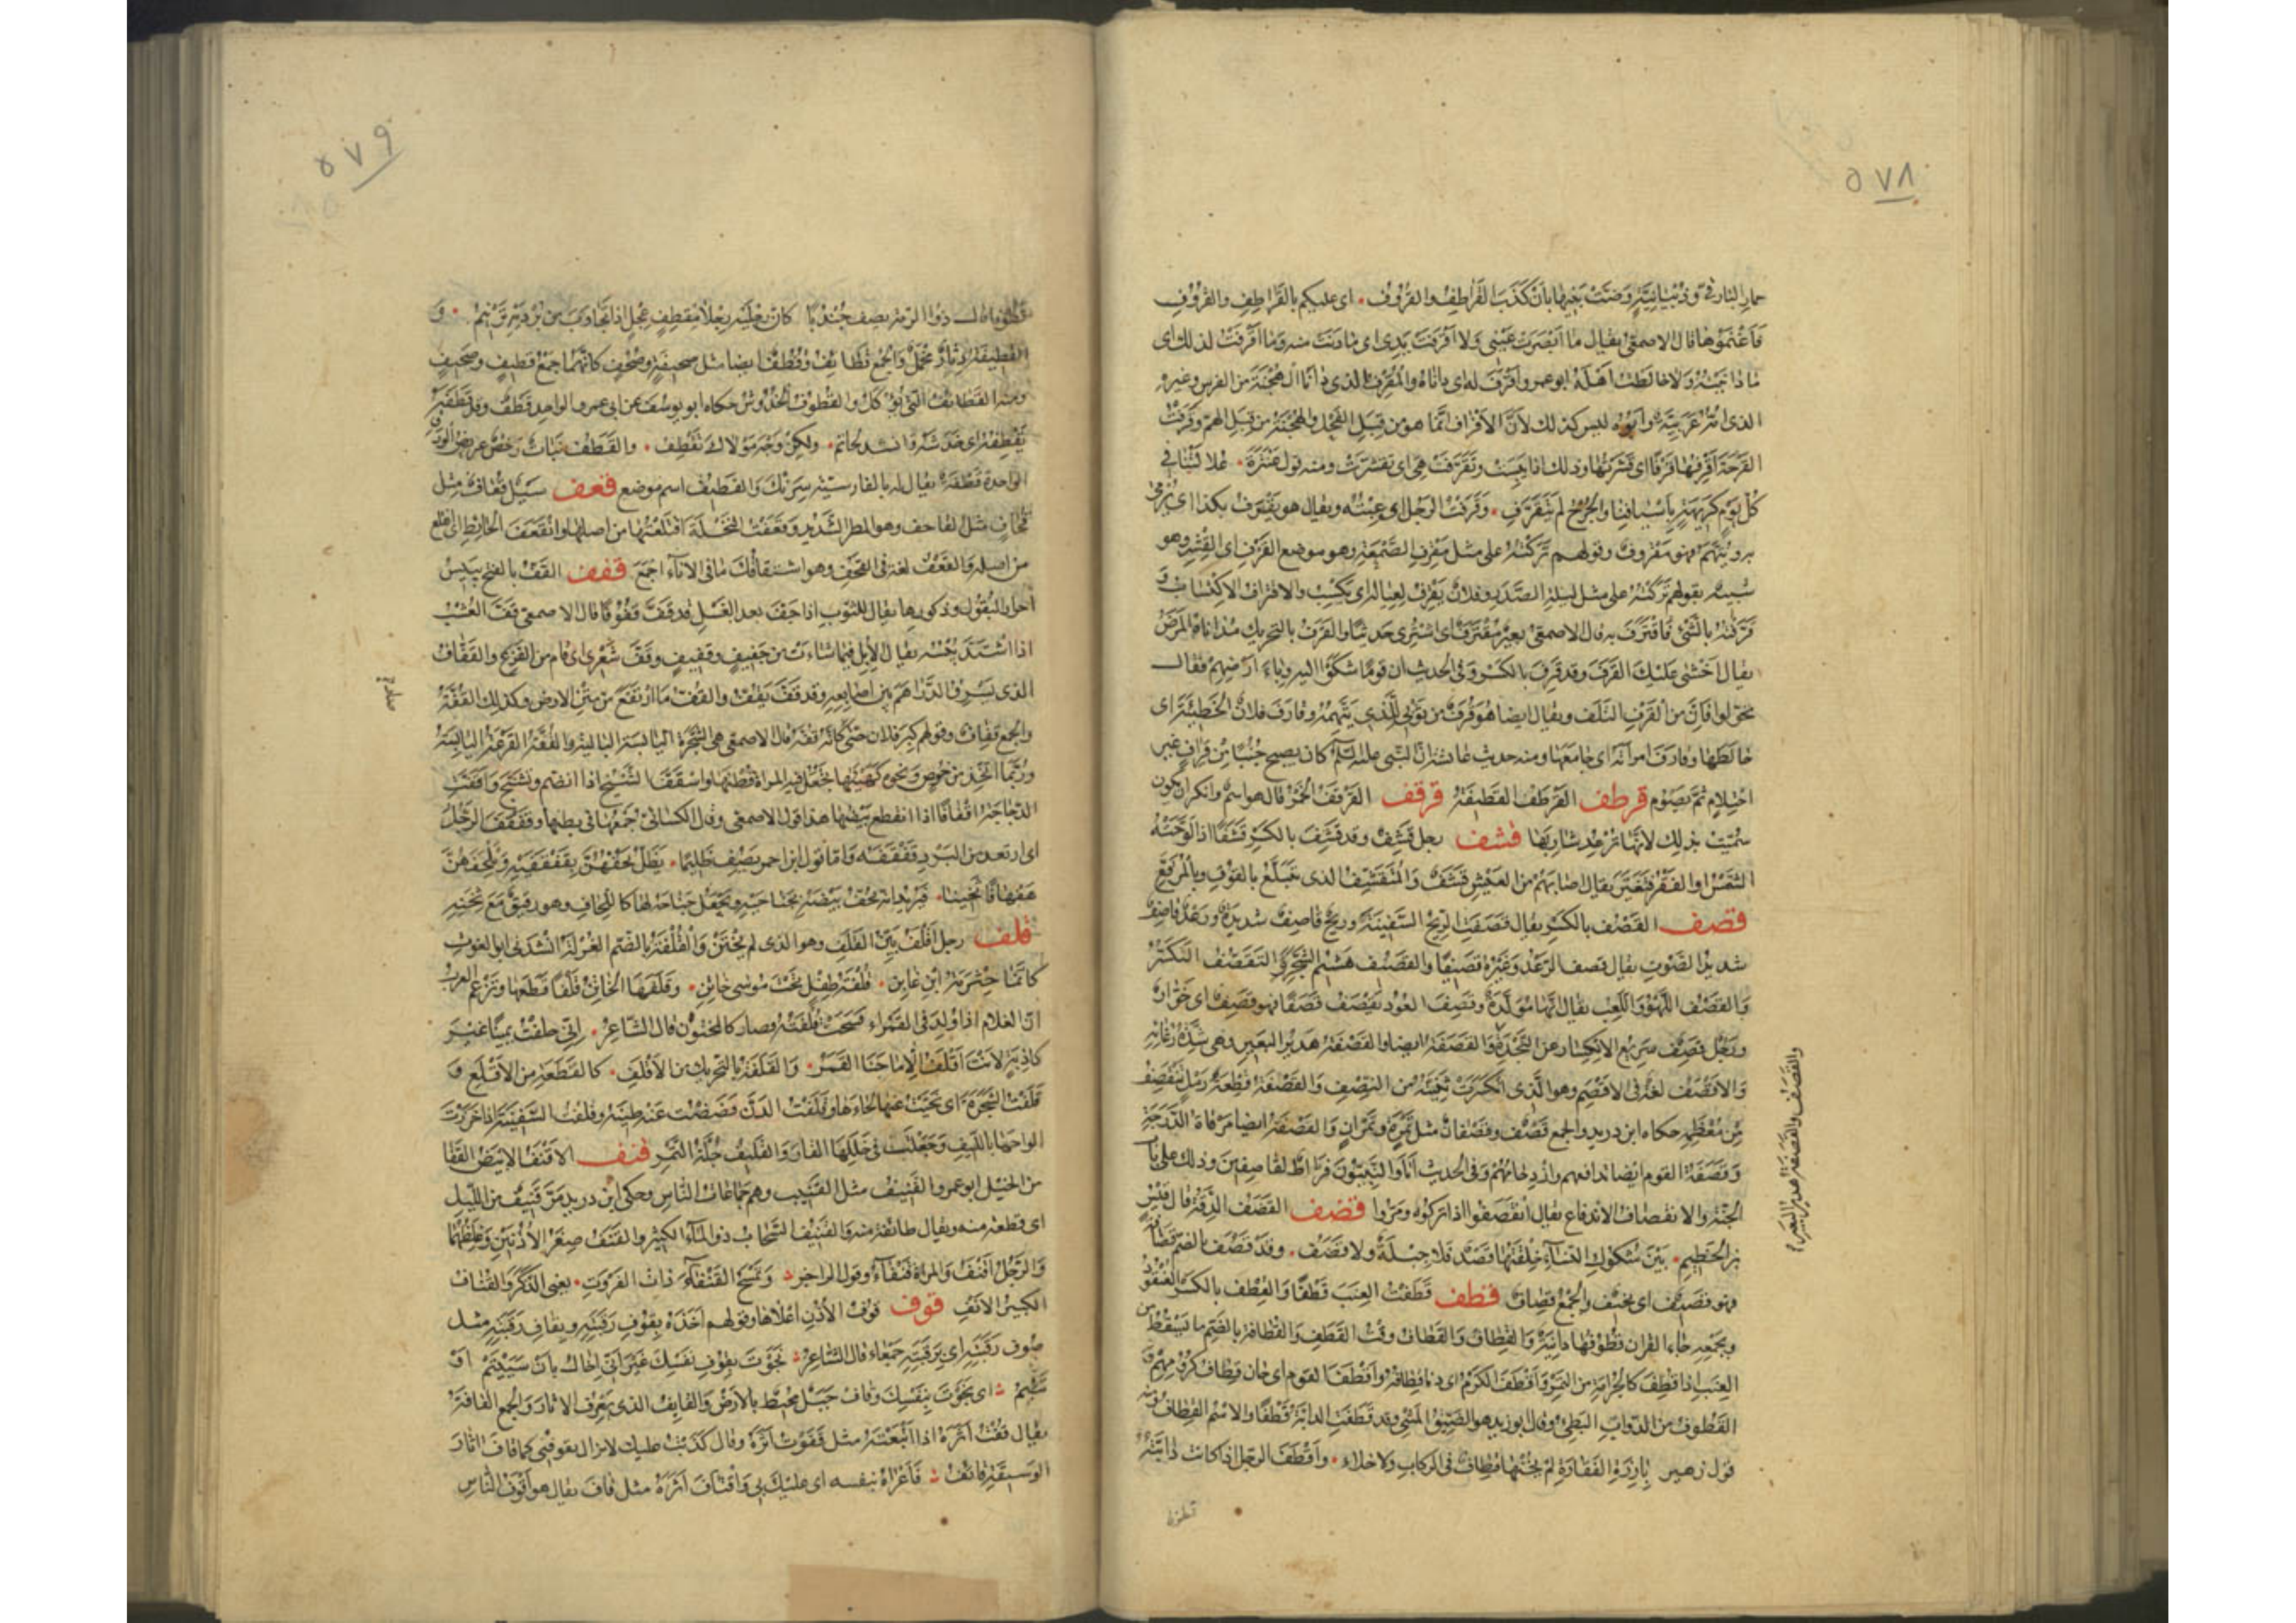 ٥٧٨
حمار البارقي وذبيانية وصت بنيها بأن كذب القراطف والقروف • اى عليكم بالقراطف والقروف
فاغنموها قال الاصمعي يقال ما ابصرت عيني ولا اقرفت يدي اى ما دنت منه وما اقرفت لذلك اى
ما دانيته ولا خالطت اهله ابو عمرو اقرف له اى داناه والمقرف الذى دانا الهجنة من الفرس وغيره
الذى امه عربية وابوه ليس كذلك لان الاقراف انما هو من قبل الفحل والهجنة من قبل الام وقرفت
القرحة اقرفها قرفا اى قشرتها وذلك اذا يبست وتقرفت هى اى تقشرت ومنه قول عنترة • علالتنا فى
كل يوم كريهة باسيافنا والجرح لم يتقرف • وقرفت الرجل اى عبته ويقال هو يقرف بكذا اى يرمى
به ويتهم فهو مقروف وقولهم تركته على مثل مقرف الصمغة وهو موضع القرف اى القشر وهو
شبيه بقولهم تركته على مثل ليلة الصدر وفلان يقرف لعياله اى يكسب والاقتراف الاكتساب و
قرفته بالشئ فاقترف به قال الاصمعي بعير مقترف اى اشترى حديثا والقرف بالتحريك مداناة المرض
يقال اخشى عليك القرف وقد قرف بالكسر وفى الحديث ان قوما شكوا اليه وباء ارضهم فقال
تحولوا فان من القرف التلف ويقال ايضا هو قرف من ثوبى للذى يتهمه وقارف فلان الخطيئة اى
خالطها وقارف امرأته اى جامعها ومنه حديث عائشة ان النبى عليه السلم كان يصبح جنبا من قراف غير
احتلام ثم يصوم قرطف القرطف القطيفة قرقف القرقف الخمر قال هو اسم وانكر ان يكون
سميت بذلك لانها ترعد شاربها قشف رجل قشف وقد قشف بالكسر قشفا اذا لوحته
الشمس او الفقر فتغير يقال اصابهم من العيش قشف والمتقشف الذى يتبلغ بالقوت وبالمرقع
قصف القصف بالكسر يقال قصفت الريح السفينة وريح قاصف شديدة ورعد قاصف
شديد الصوت يقال قصف الرعد وغيره قصيفا والقصيف هشيم الشجر والتقصف التكسر
والقصف اللهو واللعب يقال انها مولدة وقصف العود يقصف قصفا فهو قصف اى خوار
ورجل قصف سريع الانكسار عن النجدة والقصفة ايضا والقصفة هدير البعير وهى شدة رغائه
والاقصف لغة فى الاقصم وهو الذى انكسرت ثنيته من النصف والقصفة قطعة رمل تتقصف
من معظمه حكاه ابن دريد والجمع قصف وقصفان مثل تمرة وتمران والقصفة ايضا مرقاة الدرجة
وقصفة القوم ايضا تدافعهم وازدحامهم وفى الحديث انا والنبيون فراط لقاصفين وذلك على باب
الجنة والانقصاف الاندفاع يقال انقصفوا اذا تركوه ومروا قضف القضف الدقة قال قيس
بن الخطيم • بين شكول النساء خلقتها قصد فلا جبلة ولا قضف • وقد قضف بالضم قضافة
فهو قضيف اى نحيف والجمع قضاف قطف قطفت العنب قطفا والقطف بالكسر العنقود
وبجمعه جاء القران قطوفها دانية والقطاف والقطاف وقت القطف والقطافة بالضم ما يسقط من
العنب اذا قطف كالجرامة من التمر واقطف الكرم اى دنا قطافه واقطف القوم اى حان قطاف كرومهم و
القطوف من الدواب البطئ وقال ابو زيد هو الضيق المشى وقد قطفت الدابة قطفا والاسم القطاف ومنه
قول زهير بارزة الفقارة لم يخنها قطاف فى الركاب ولا خلاء • واقطف الرجل اذا كانت دابته
قطوفا
والقصف والقصفة هدير البعير
٥٧٩
قطوفا قال ذو الرمة يصف جندبا كان رجليه رجلا مقطف عجل اذا تجاوب من برديه ترنيم • و
القطيفة دثار مخمل والجمع قطائف وقطف ايضا مثل صحيفة وصحف كانهما جمع قطيف وصحيف
ومنه القطائف التى تؤكل والقطوف الخدوش حكاه ابو يوسف عن ابى عمرو الواحد قطف وقد قطفه
يقطفه اى خدشه وانشد لحاتم • ولكن وجه مولاك تقطف • والقطف نبات رخص عريض الورق
الواحدة قطفة يقال له بالفارسية سرنك والقطيف اسم موضع قعف سيل قعاف مثل
قحاف مثل القاحف وهو المطر الشديد وقعفت النخلة اقتلعتها من اصلها وانقعف الحائط اى انقلع
من اصله والقعف لغة فى القحف وهو اشتفافك ما فى الاناء اجمع قفف القف بالفتح يبيس
احرار البقول وذكورها يقال للثوب اذا جف بعد الغسل قد قف قفوفا قال الاصمعي قف العشب
اذا اشتد يبسه يقال الابل فيما شاءت من جفيف وقفيف وقف شعرى اى قام من الفزع والقفاف
الذى يسرق الدراهم بين اصابعه وقد قف يقف والقف ما ارتفع من متن الارض وكذلك القفة
والجمع قفاف وقولهم كبر فلان حتى كانه قفة قال الاصمعي هى الشجرة اليابسة البالية والقفة القرعة اليابسة
وربما اتخذ من خوص ونحوه كهيئتها تجعل فيه المراة قطنها واستقف الشيخ اذا انضم وتشنج واقفت
الدجاجة اقفافا اذا انقطع بيضها هذا قول الاصمعي وقال الكسائى جمعها فى بطنها وقفقف الرجل
اى ارتعد من البرد قفقفة واما قول ابن احمر يصف ظليما • يظل يحفهن بقفقفيه ويلحفهن
هفهافا ثخينا • فيريد انه يحف بيضه بجناحيه ويجعل جناحه لها كاللحاف وهو رقيق مع ثخنه
قلف رجل اقلف بين القلف وهو الذى لم يختن والقلفة بالضم الغرلة انشدنى ابو الغوث
كانما حثرمة ابن غابن • قلفة طفل تحت موسى خاتن • وقلفها الخاتن قلفا قطعها وتزعم العرب
ان الغلام اذا ولد فى القمراء فسحت قلفته فصار كالمختون قال الشاعر • انى حلفت يمينا غير
كاذبة لانت اقلف الا ما جنا القمر • والقلفة بالتحريك من الاقلف • كالقطعة من الاقطع و
قلفت الشجرة اى نحيت عنها لحاءها وقلفت الدن فضضت عنه طينه وقلفت السفينة اذا خرزت
الواحها بالليف وجعلت فى خللها القار والقليف جلة التمر قنف الاقنف الابيض القفا
من الخيل ابو عمرو القنيف مثل القنيب وهم جماعات الناس وحكى ابن دريد مر قنيف من الليل
اى قطعة منه ويقال طائفة منه والقنيف السحاب ذو الماء الكثير والقنف صغر الاذنين وغلظهما
والرجل اقنف والمراة قنفاء وقول الراجز • وتمسح القنفاء ذات الفروة • يعنى الذكر والقناف
الكبير الانف قوف قوف الاذن اعلاها وقولهم اخذه بقوف رقبته وبقاف رقبته مثل
صوف رقبته اى برقبته جمعاء قال الشاعر • نجوت بقوف نفسك غير انى اخال بان سييتم او
تئيم • اى نجوت بنفسك وقاف جبل محيط بالارض والقائف الذى يعرف الاثار والجمع القافة
يقال قفت اثره اذا اتبعته مثل قفوت اثره وقال كذبت عليك لا تزال تقوفنى كما قاف اثار
الوسيقة قائف • فاغراه بنفسه اى عليك بى واقتاف اثره مثل قاف يقال هو اقوف الناس